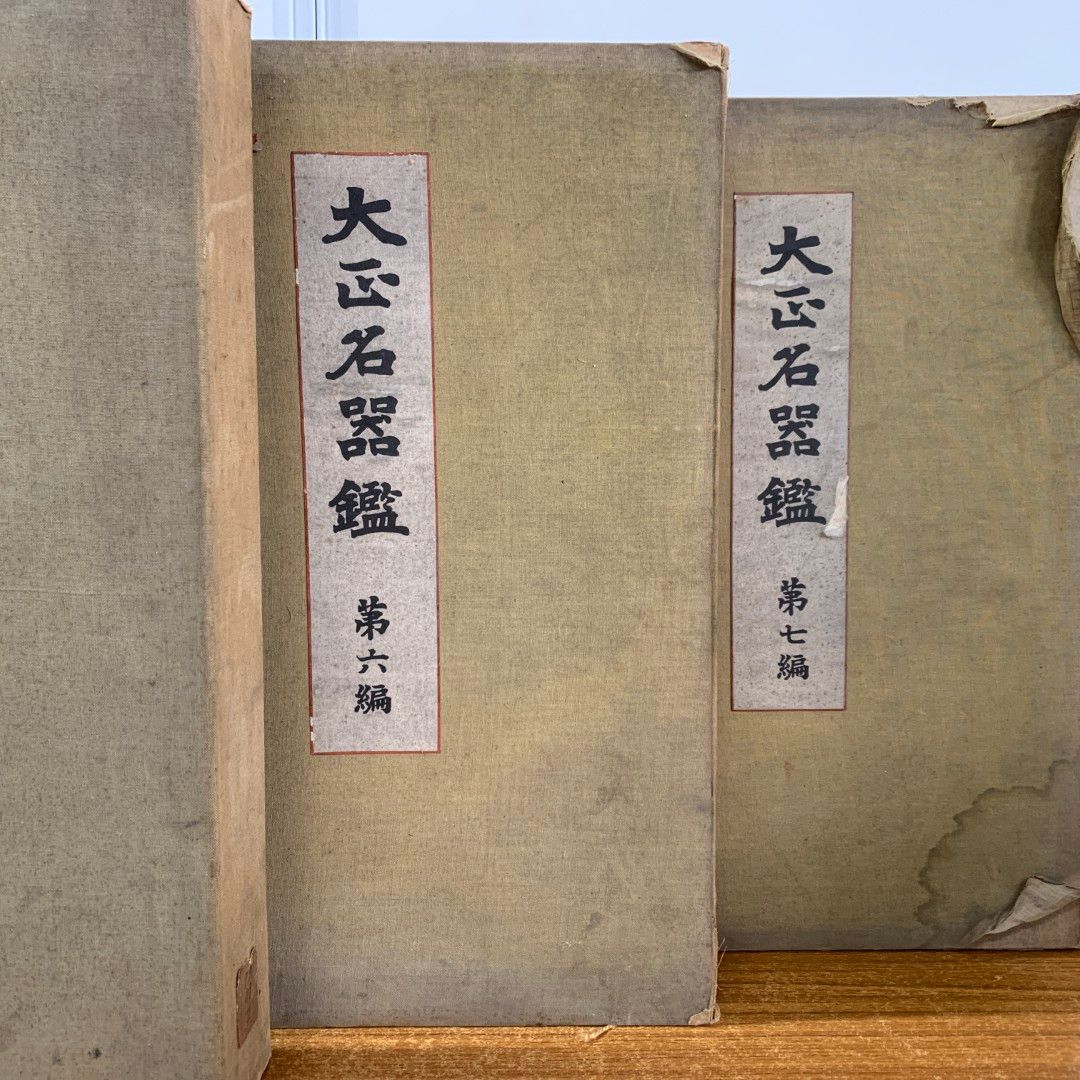 大正名器鑑 第六編
大正名器鑑 第七編